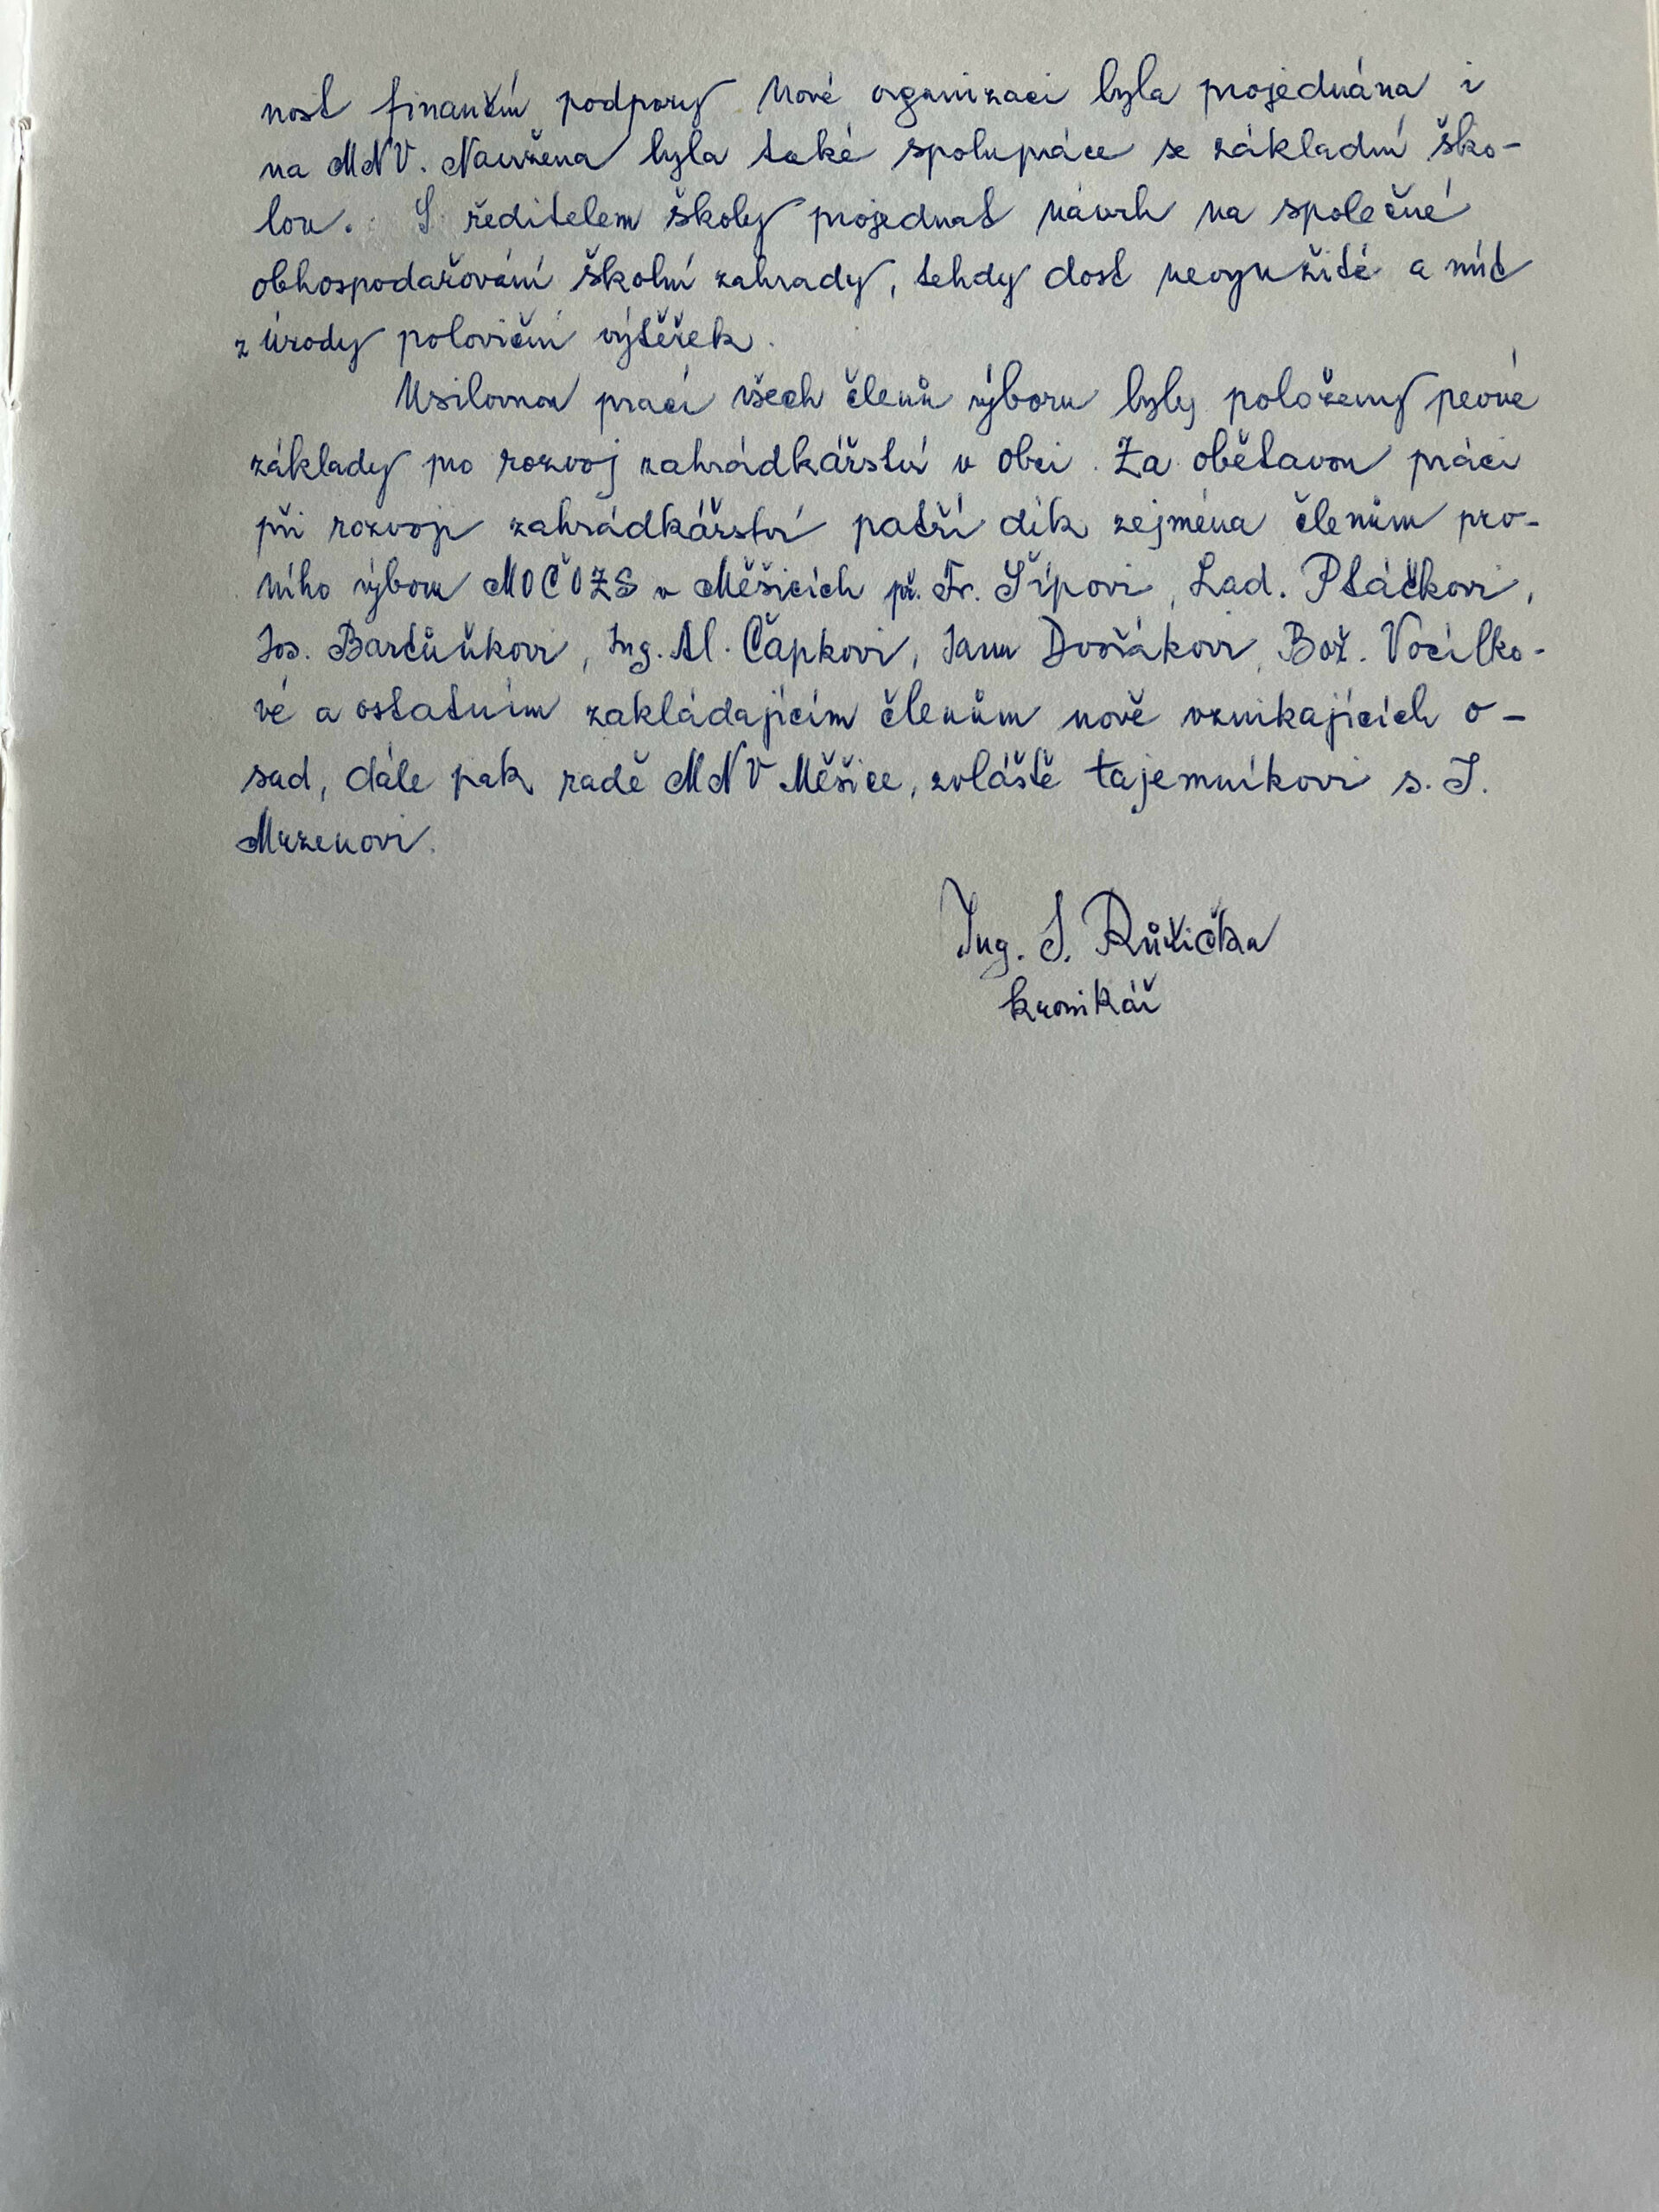 nost finanční podpory nové organizaci byla projednána i
na MNV. Navržena byla také spolupráce se základní ško-
lou. S ředitelem školy projednat návrh na společné
obhospodařování školní zahrady, tehdy dost nevyužité a mít
z úrody poloviční výtěžek.
Usilovnou prací všech členů výboru byly položeny pevné
základy pro rozvoj zahrádkářství v obci. Za obětavou práci
při rozvoji zahrádkářství patří dík zejména členům prv-
ního výboru MOČOZS v Měšicích př. Fr. Šípovi, Lad. Ptáčkovi,
Jos. Bartůňkovi, Ing. Al. Čapkovi, Janu Dvořákovi, Bož. Vocílko-
vé a ostatním zakládajícím členům nově vznikajících o-
sad, dále pak radě MNV Měšice, zvláště tajemníkovi s. J.
Mrzenovi.
Ing. J. Růžička
kronikář